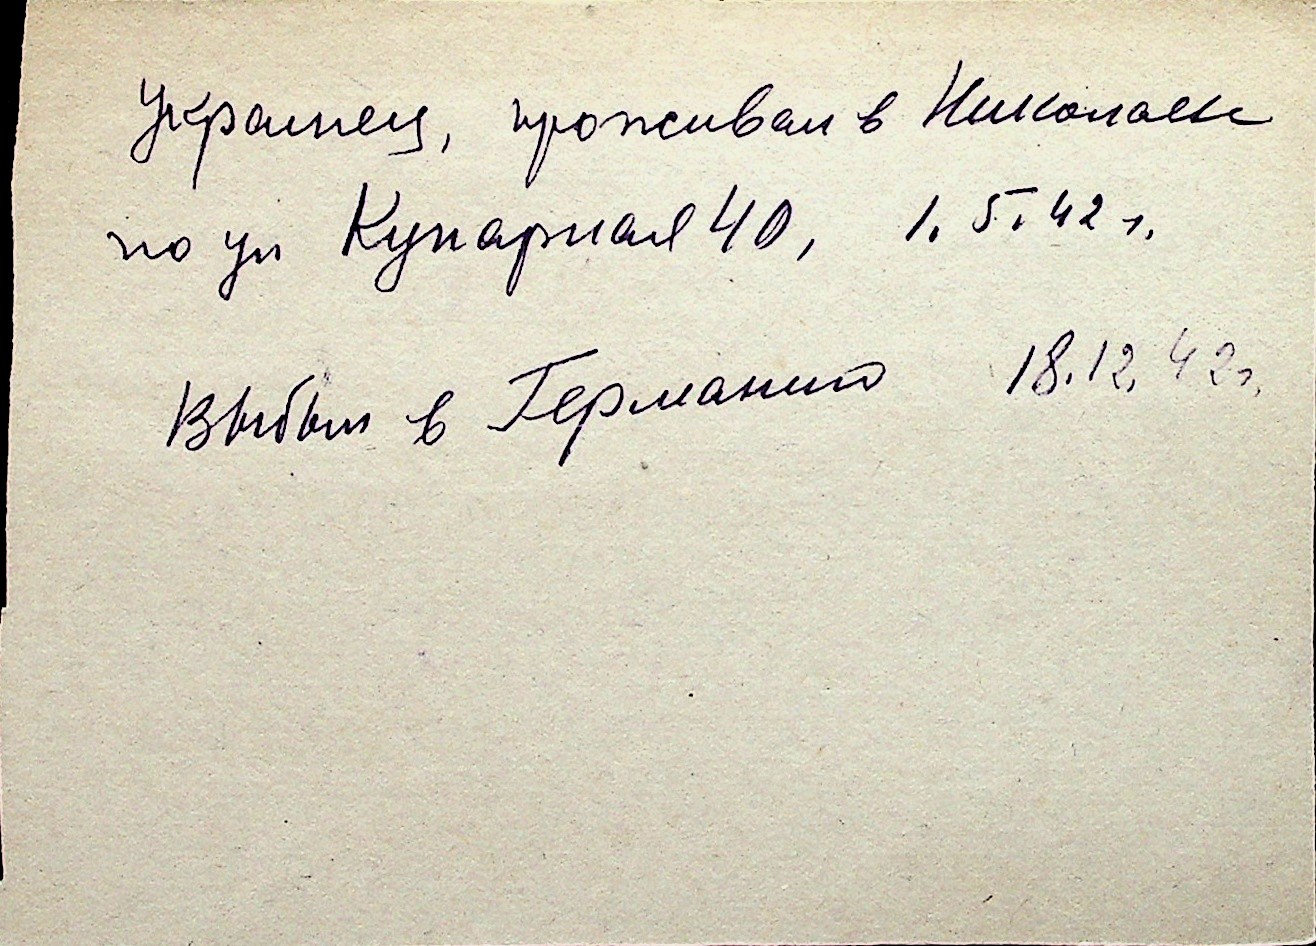 Украинец, проживал в Николаеве
по ул Купарная 40, 1.5.42 г.
Выбыл в Германию 18.12.42г.